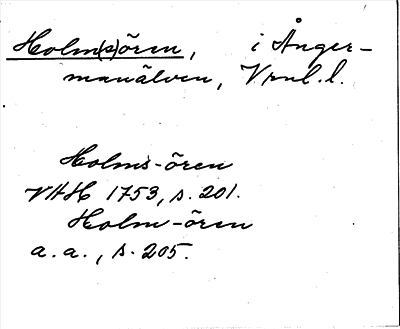 Holm(s)ören, i Ånger-
manälven, Vrml. l.
Holms-ören
VAH 1753, s. 201.
Holm-ören
a. a., s. 205.